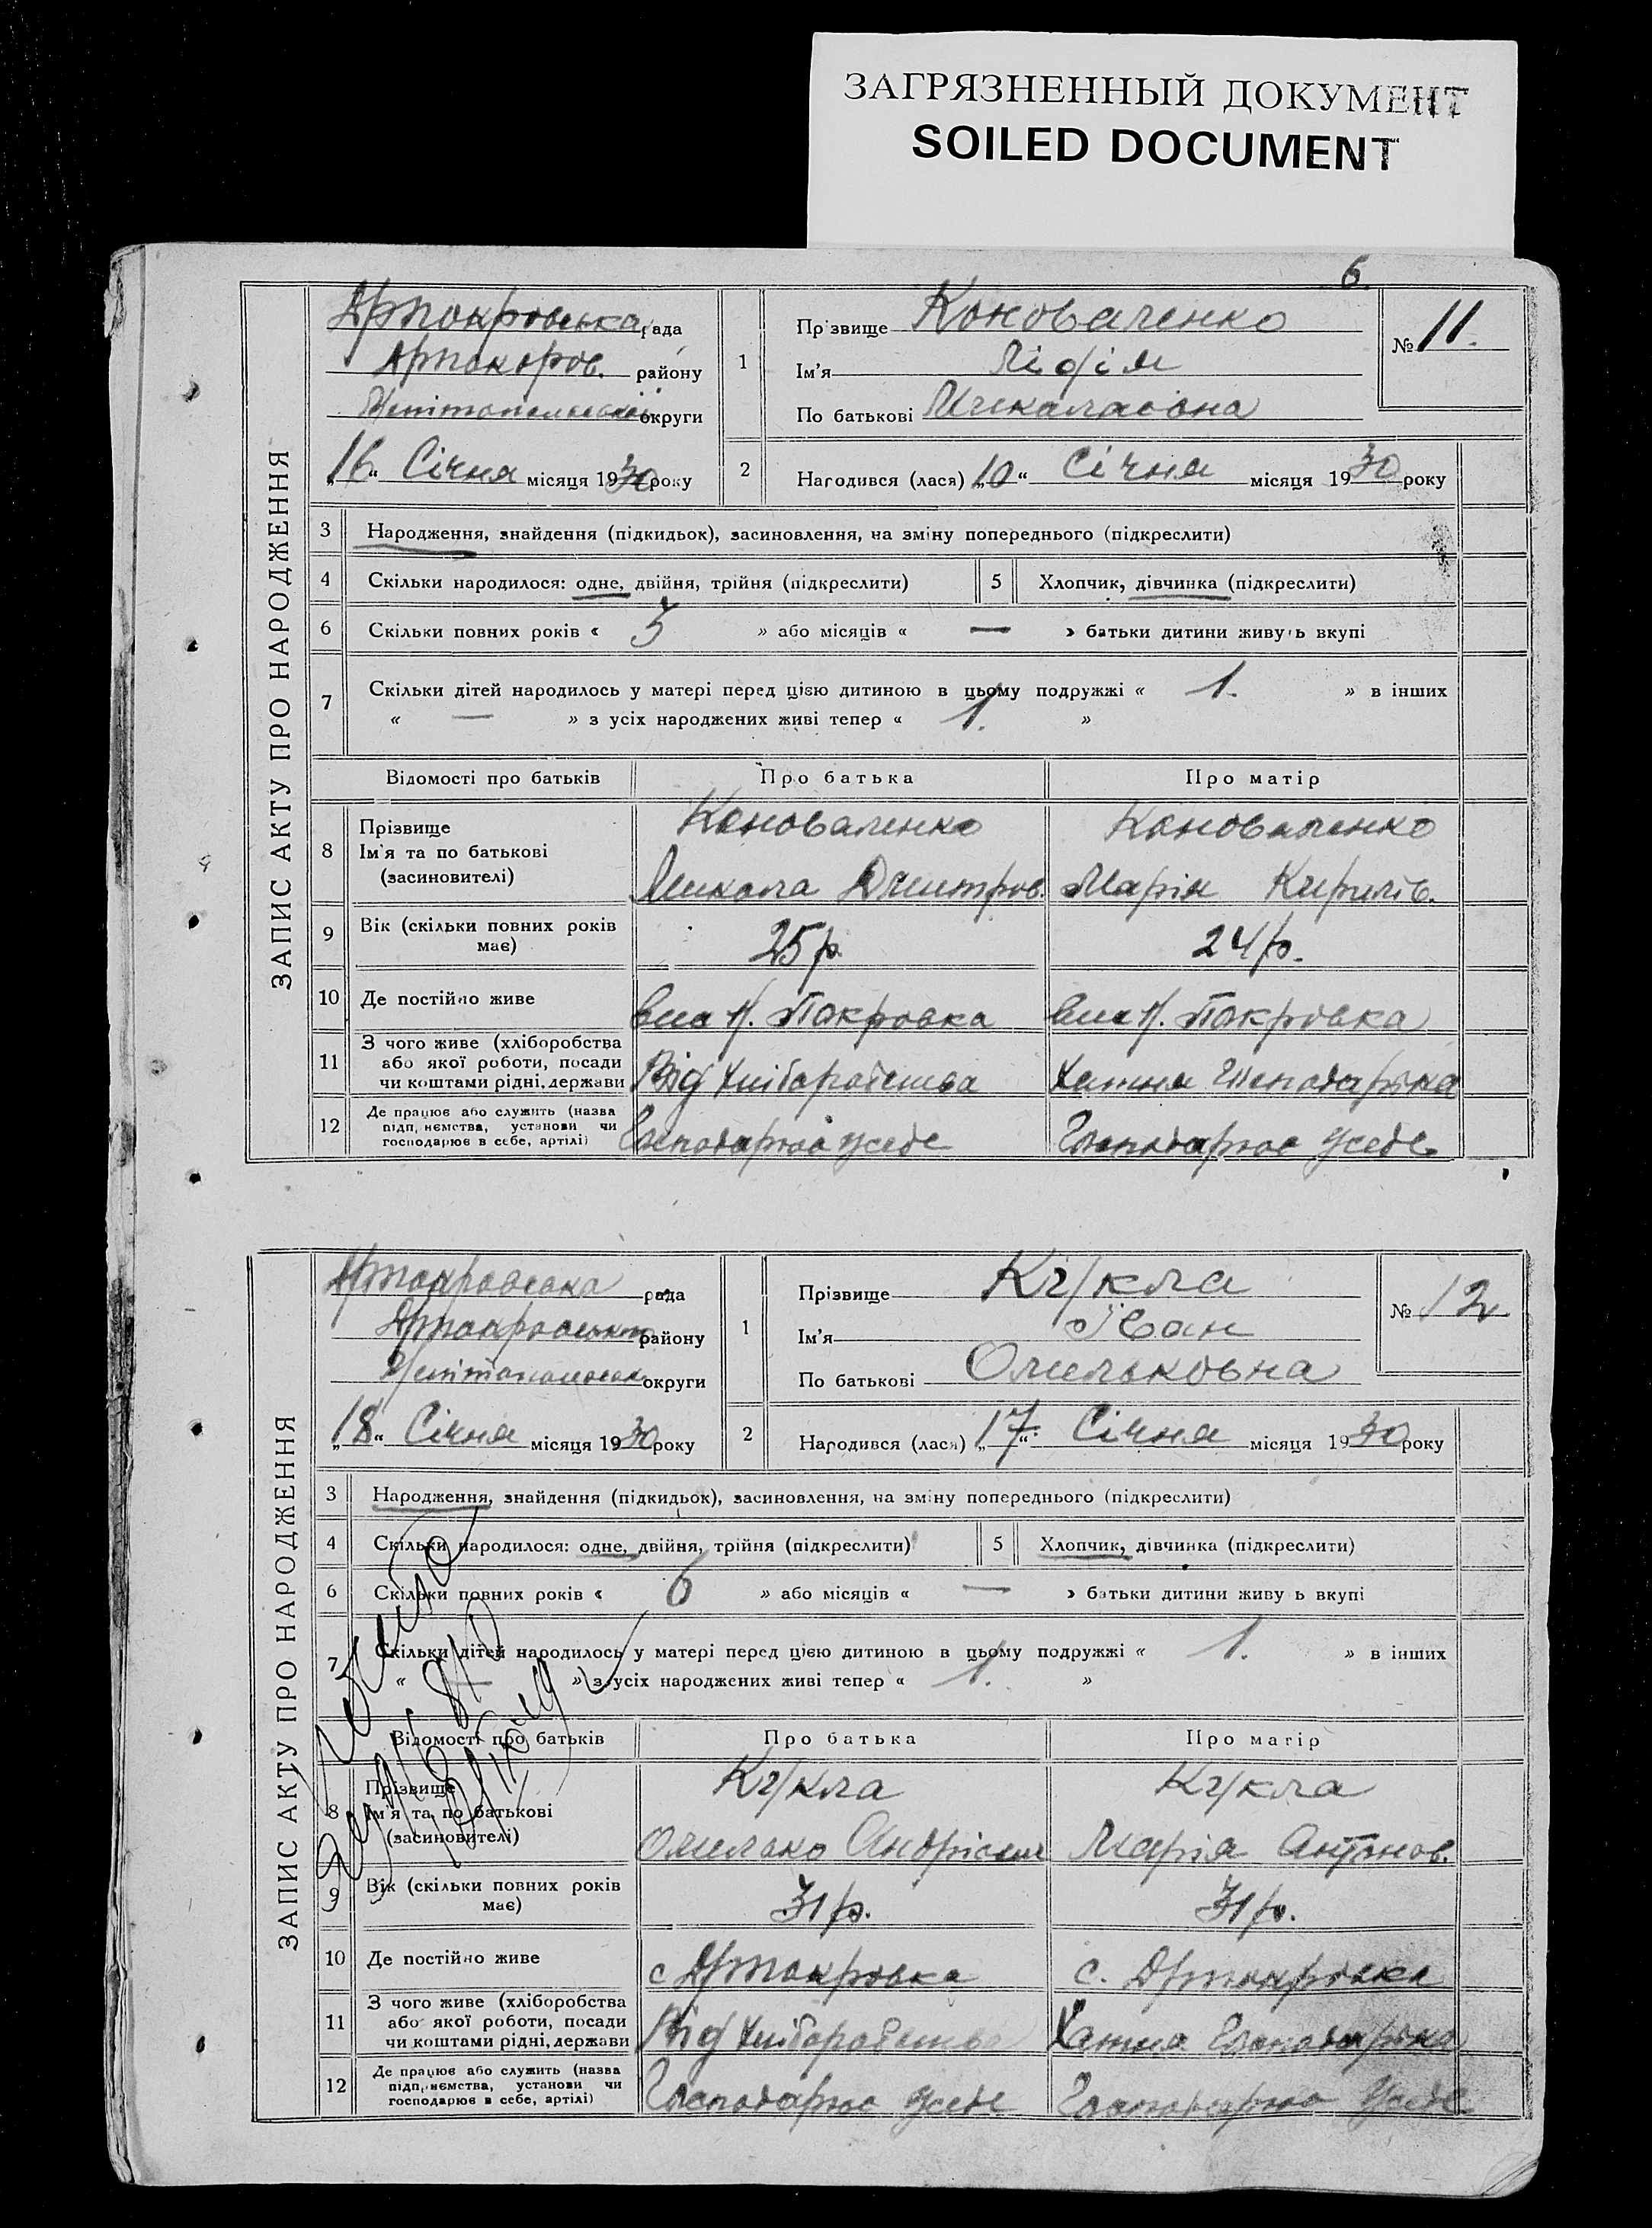 ЗАГРЯЗНЕННЫЙ ДОКУМЕНТ
SOILED DOCUMENT
6.
ЗАПИС АКТУ ПРО НАРОДЖЕННЯ
рада
району
округи
„16“ Січня місяця 1930 року
1
Прізвище Коноваленко
Ім'я Лідія
По батькові Миколаєвна
№ 11.
2
Народився (лася) „10“ Січня місяця 1930 року
3 Народження, знайдення (підкидьок), засиновлення, на зміну попереднього (підкреслити)
4 Скільки народилося: одне, двійня, трійня (підкреслити) 5 Хлопчик, дівчинка (підкреслити)
6 Скільки повних років « » або місяців « — » батьки дитини живуть вкупі
7 Скільки дітей народилось у матері перед цією дитиною в цьому подружжі « 1. » в інших
« — » з усіх народжених живі тепер « 1. »
Відомості про батьків Про батька Про матір
8 Прізвище Ім'я та по батькові (засиновителі)
Коноваленко Коноваленко
Микола Дмитров. Марія Кирилів.
9 Вік (скільки повних років має) 25 р. 24 р.
10 Де постійно живе Покровка Покровка
11 З чого живе (хліборобства або якої роботи, посади чи коштами рідні, держави Від хліборобства Хатня Господарька
12 Де працює або служить (назва підприємства, установи чи господарює в себе, артілі) Господарює усебе Господарює усебе
ЗАПИС АКТУ ПРО НАРОДЖЕННЯ
рада
району
округи
„18“ Січня місяця 1930 року
1
Прізвище Кукла
Ім'я Іван
По батькові Омельковна
№ 12
2
Народився (лася) „17“ Січня місяця 1930 року
3 Народження, знайдення (підкидьок), засиновлення, на зміну попереднього (підкреслити)
4 Скільки народилося: одне, двійня, трійня (підкреслити) 5 Хлопчик, дівчинка (підкреслити)
6 Скільки повних років « 6 » або місяців « — » батьки дитини живуть вкупі
7 Скільки дітей народилось у матері перед цією дитиною в цьому подружжі « 1. » в інших
« — » з усіх народжених живі тепер « 1. »
Відомості про батьків Про батька Про матір
8 Прізвище Ім'я та по батькові (засиновителі)
Кукла Кукла
Омелько Марія Антонов.
9 Вік (скільки повних років має) 31 р. 31 р.
10 Де постійно живе с. с.
11 З чого живе (хліборобства або якої роботи, посади чи коштами рідні, держави Від хліборобства Хатня Господарька
12 Де працює або служить (назва підприємства, установи чи господарює в себе, артілі) Господарює усебе Господарює усебе